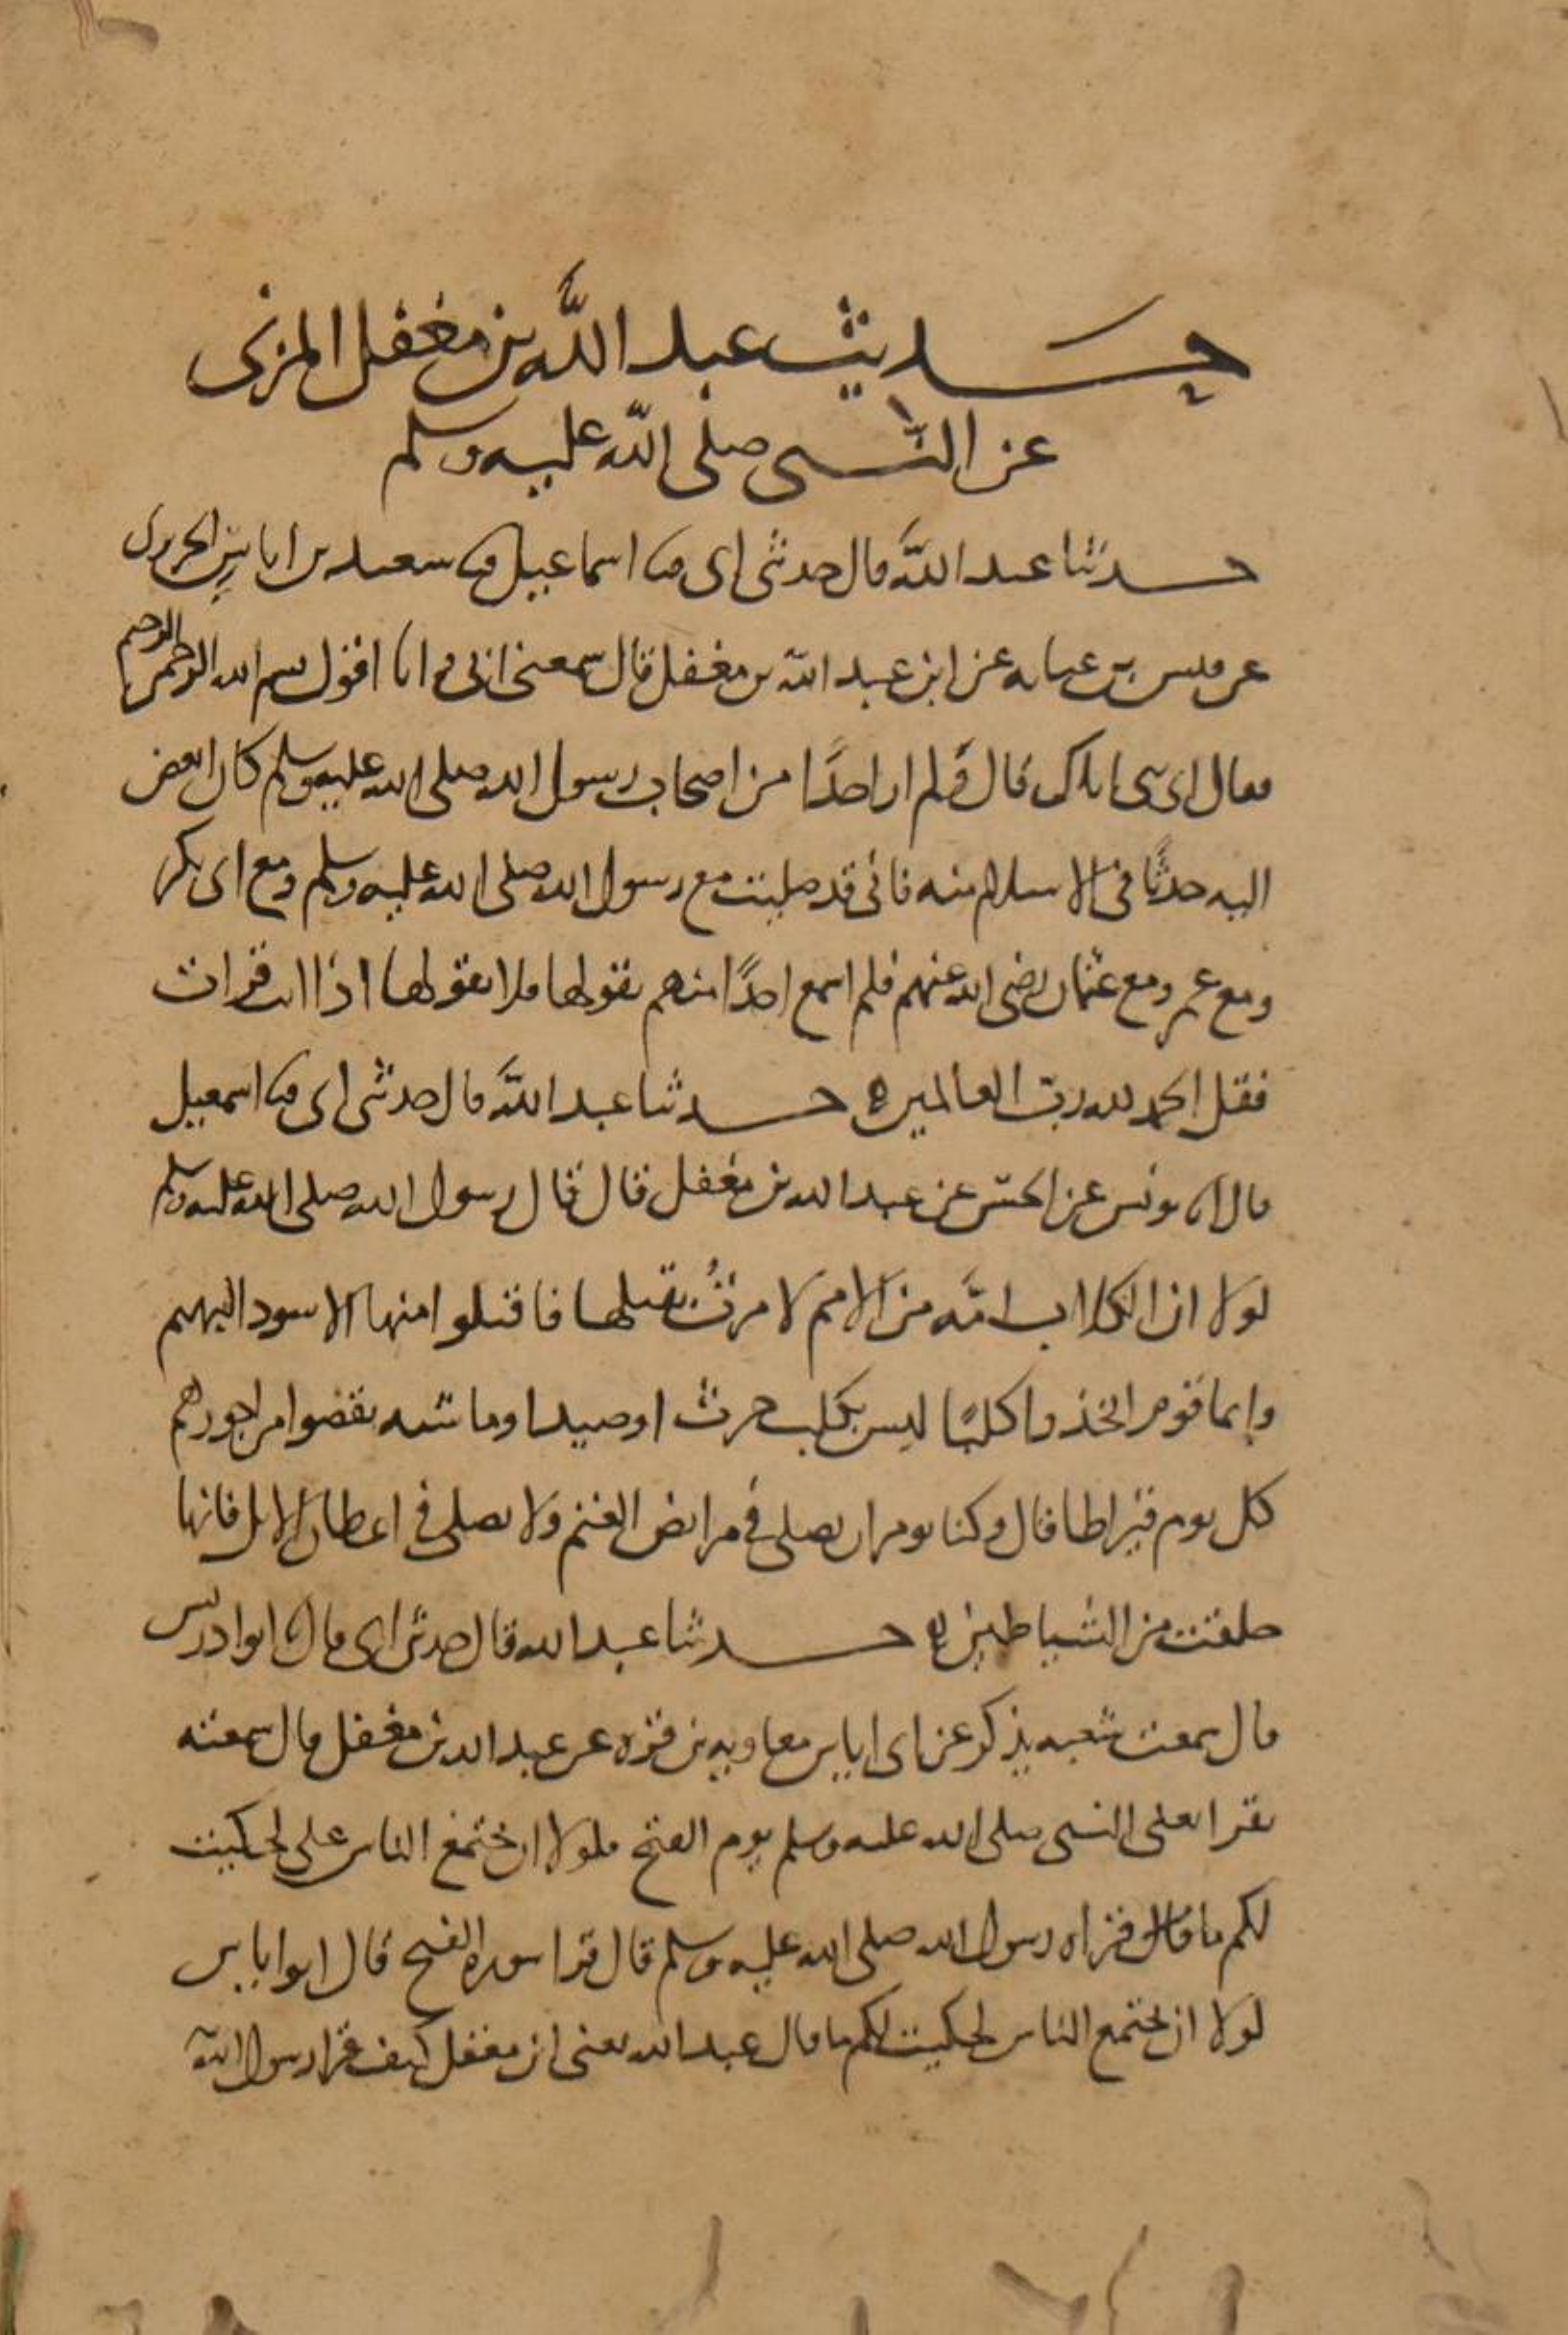 حديث عبد الله بن مغفل المزني
عن النبي صلى الله عليه وسلم
حدثنا عبد الله قال حدثني ابي ثنا اسماعيل ثنا سعيد بن اياس الجريري
عن قيس بن عبايه عن ابن عبد الله بن مغفل قال سمعني ابي وانا اقول بسم الله الرحمن الرحيم
فقال اي بني اياك قال ولم ار احدًا من اصحاب رسول الله صلى الله عليه وسلم كان ابغض
اليه حدثًا في الاسلام منه فاني قد صليت مع رسول الله صلى الله عليه وسلم ومع ابي بكر
ومع عمر ومع عثمان رضي الله عنهم فلم اسمع احدًا منهم يقولها فلا تقولها اذا انت قرات
فقل الحمد لله ربّ العالمين ه حدثنا عبد الله قال حدثني ابي ثنا اسمعيل
قال انا يونس عن الحسن عن عبد الله بن مغفل قال قال رسول الله صلى الله عليه وسلم
لولا ان الكلاب امّه من الامم لامرتُ بقتلها فاقتلوا منها الاسود البهيم
وايما قوم اتخذوا كلبًا ليس بكلب حرث او صيد او ماشيه نقصوا من اجورهم
كل يوم قيراطا قال وكنا نومر ان نصلي في مرابض الغنم ولا نصلي في اعطان الابل فانها
خلقت من الشياطين ه حدثنا عبد الله قال حدثني ابي قال ثنا ابن ادريس
قال سمعت شعبه يذكر عن ابي اياس معاويه بن قره عن عبد الله بن مغفل قال سمعته
يقرا على النبي صلى الله عليه وسلم يوم الفتح فلولا ان يجتمع الناس علي لحكيت
لكم ما قال قراه رسول الله صلى الله عليه وسلم قال قرا سوره الفتح قال ابو اياس
لولا ان يجتمع الناس لحكيت لكم ما قال عبد الله يعني ابن مغفل كيف قرا رسول الله